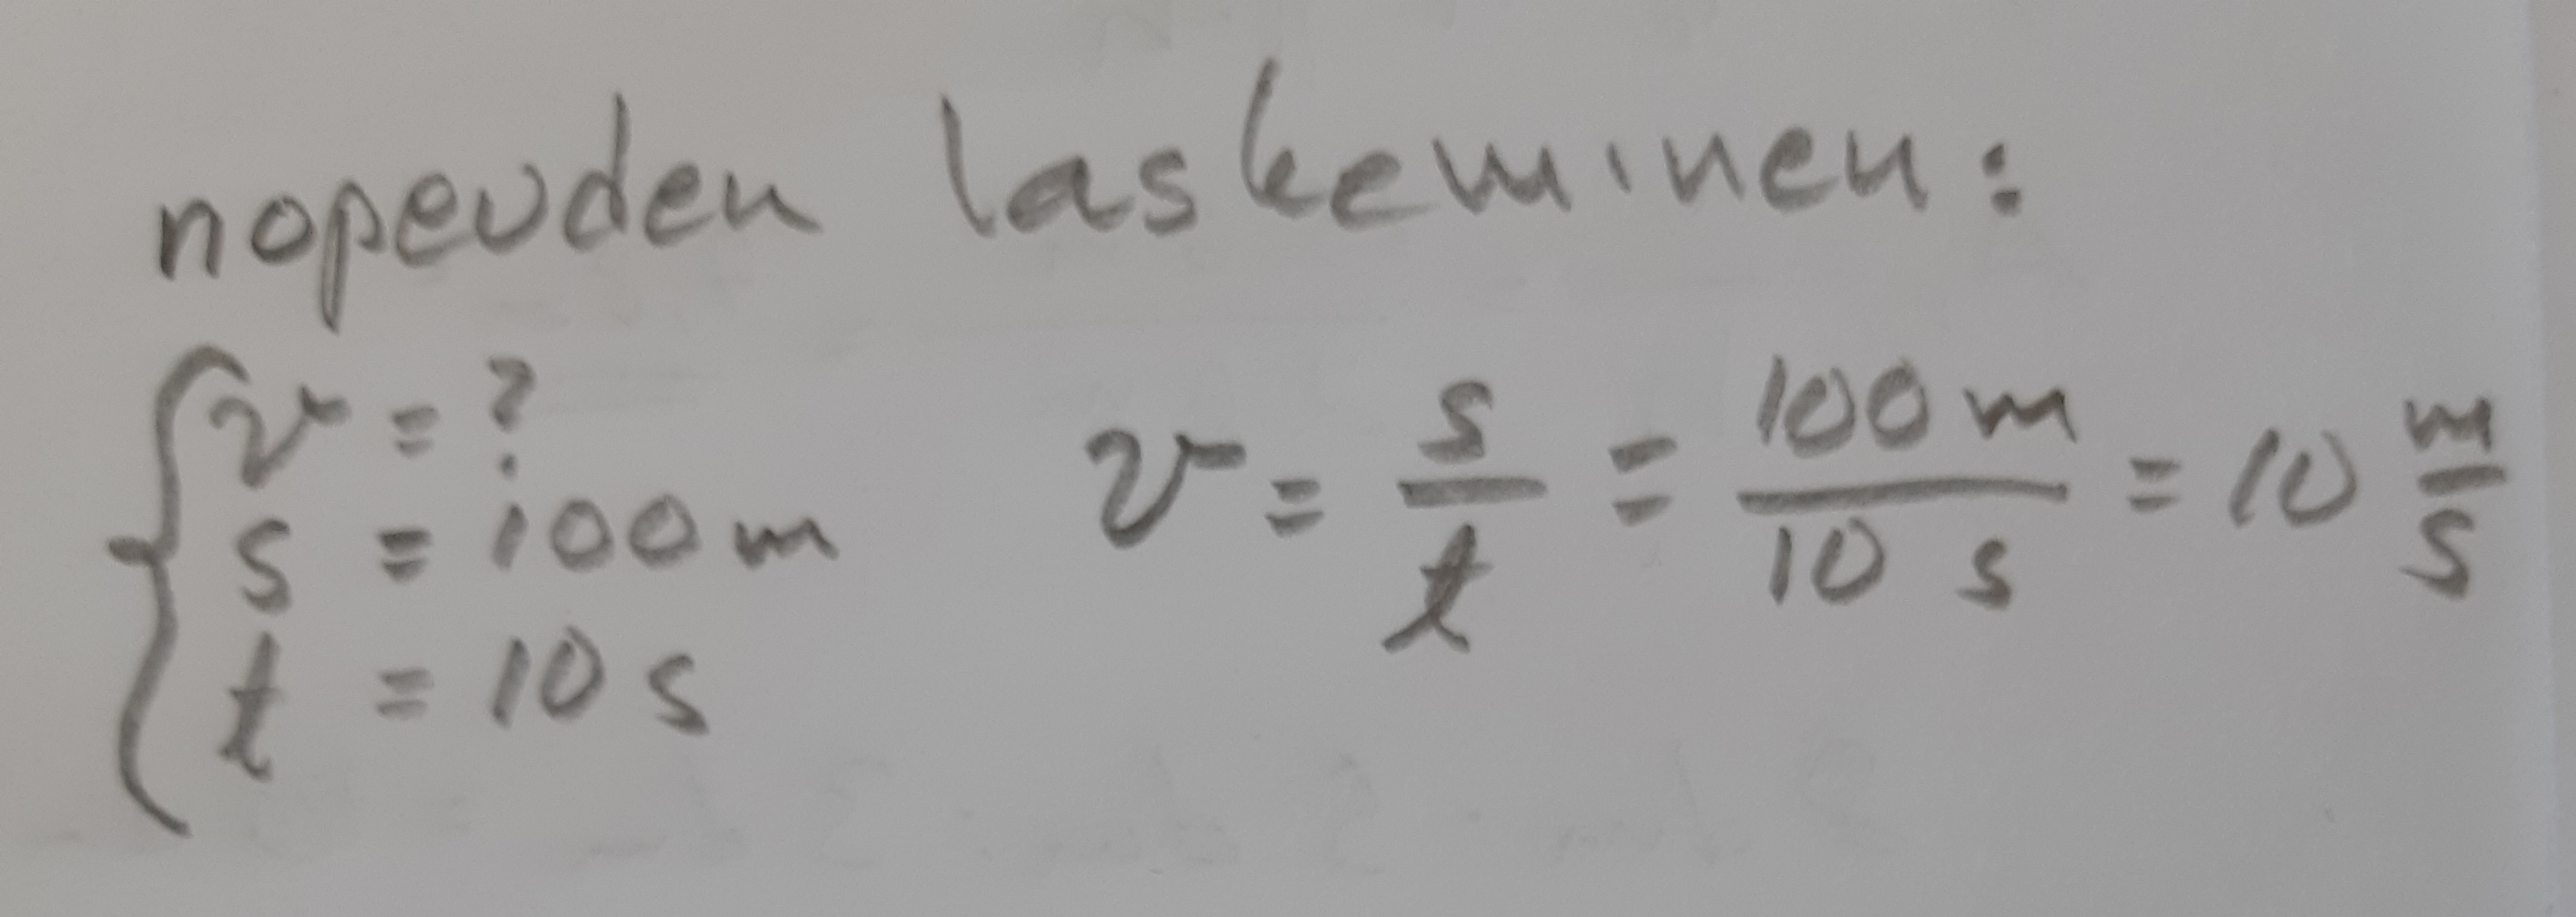 nopeuden laskeminen:
v = ?
s = 100 m
t = 10 s
v = s/t = 100 m/10 s = 10 m/s